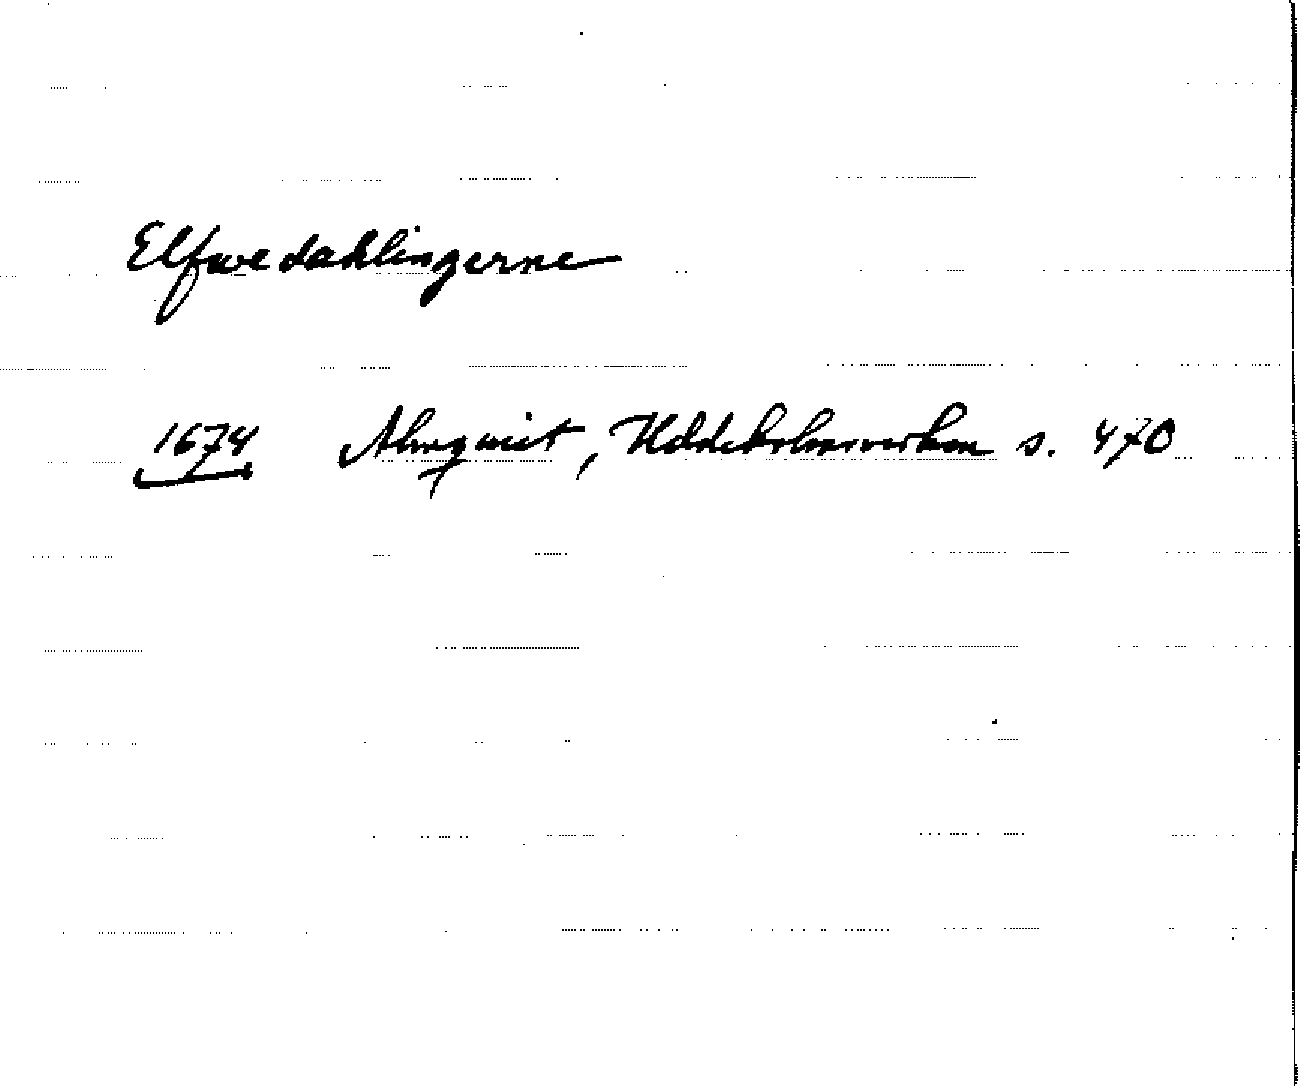 Elfwedahlingerne
1674 Almquist, Uddeholmsverken s. 470